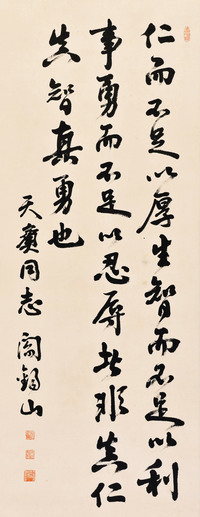 仁而不足以厚生智而不足以利
事勇而不足以忍辱皆非真仁
真智真勇也
天彝同志 閻錫山